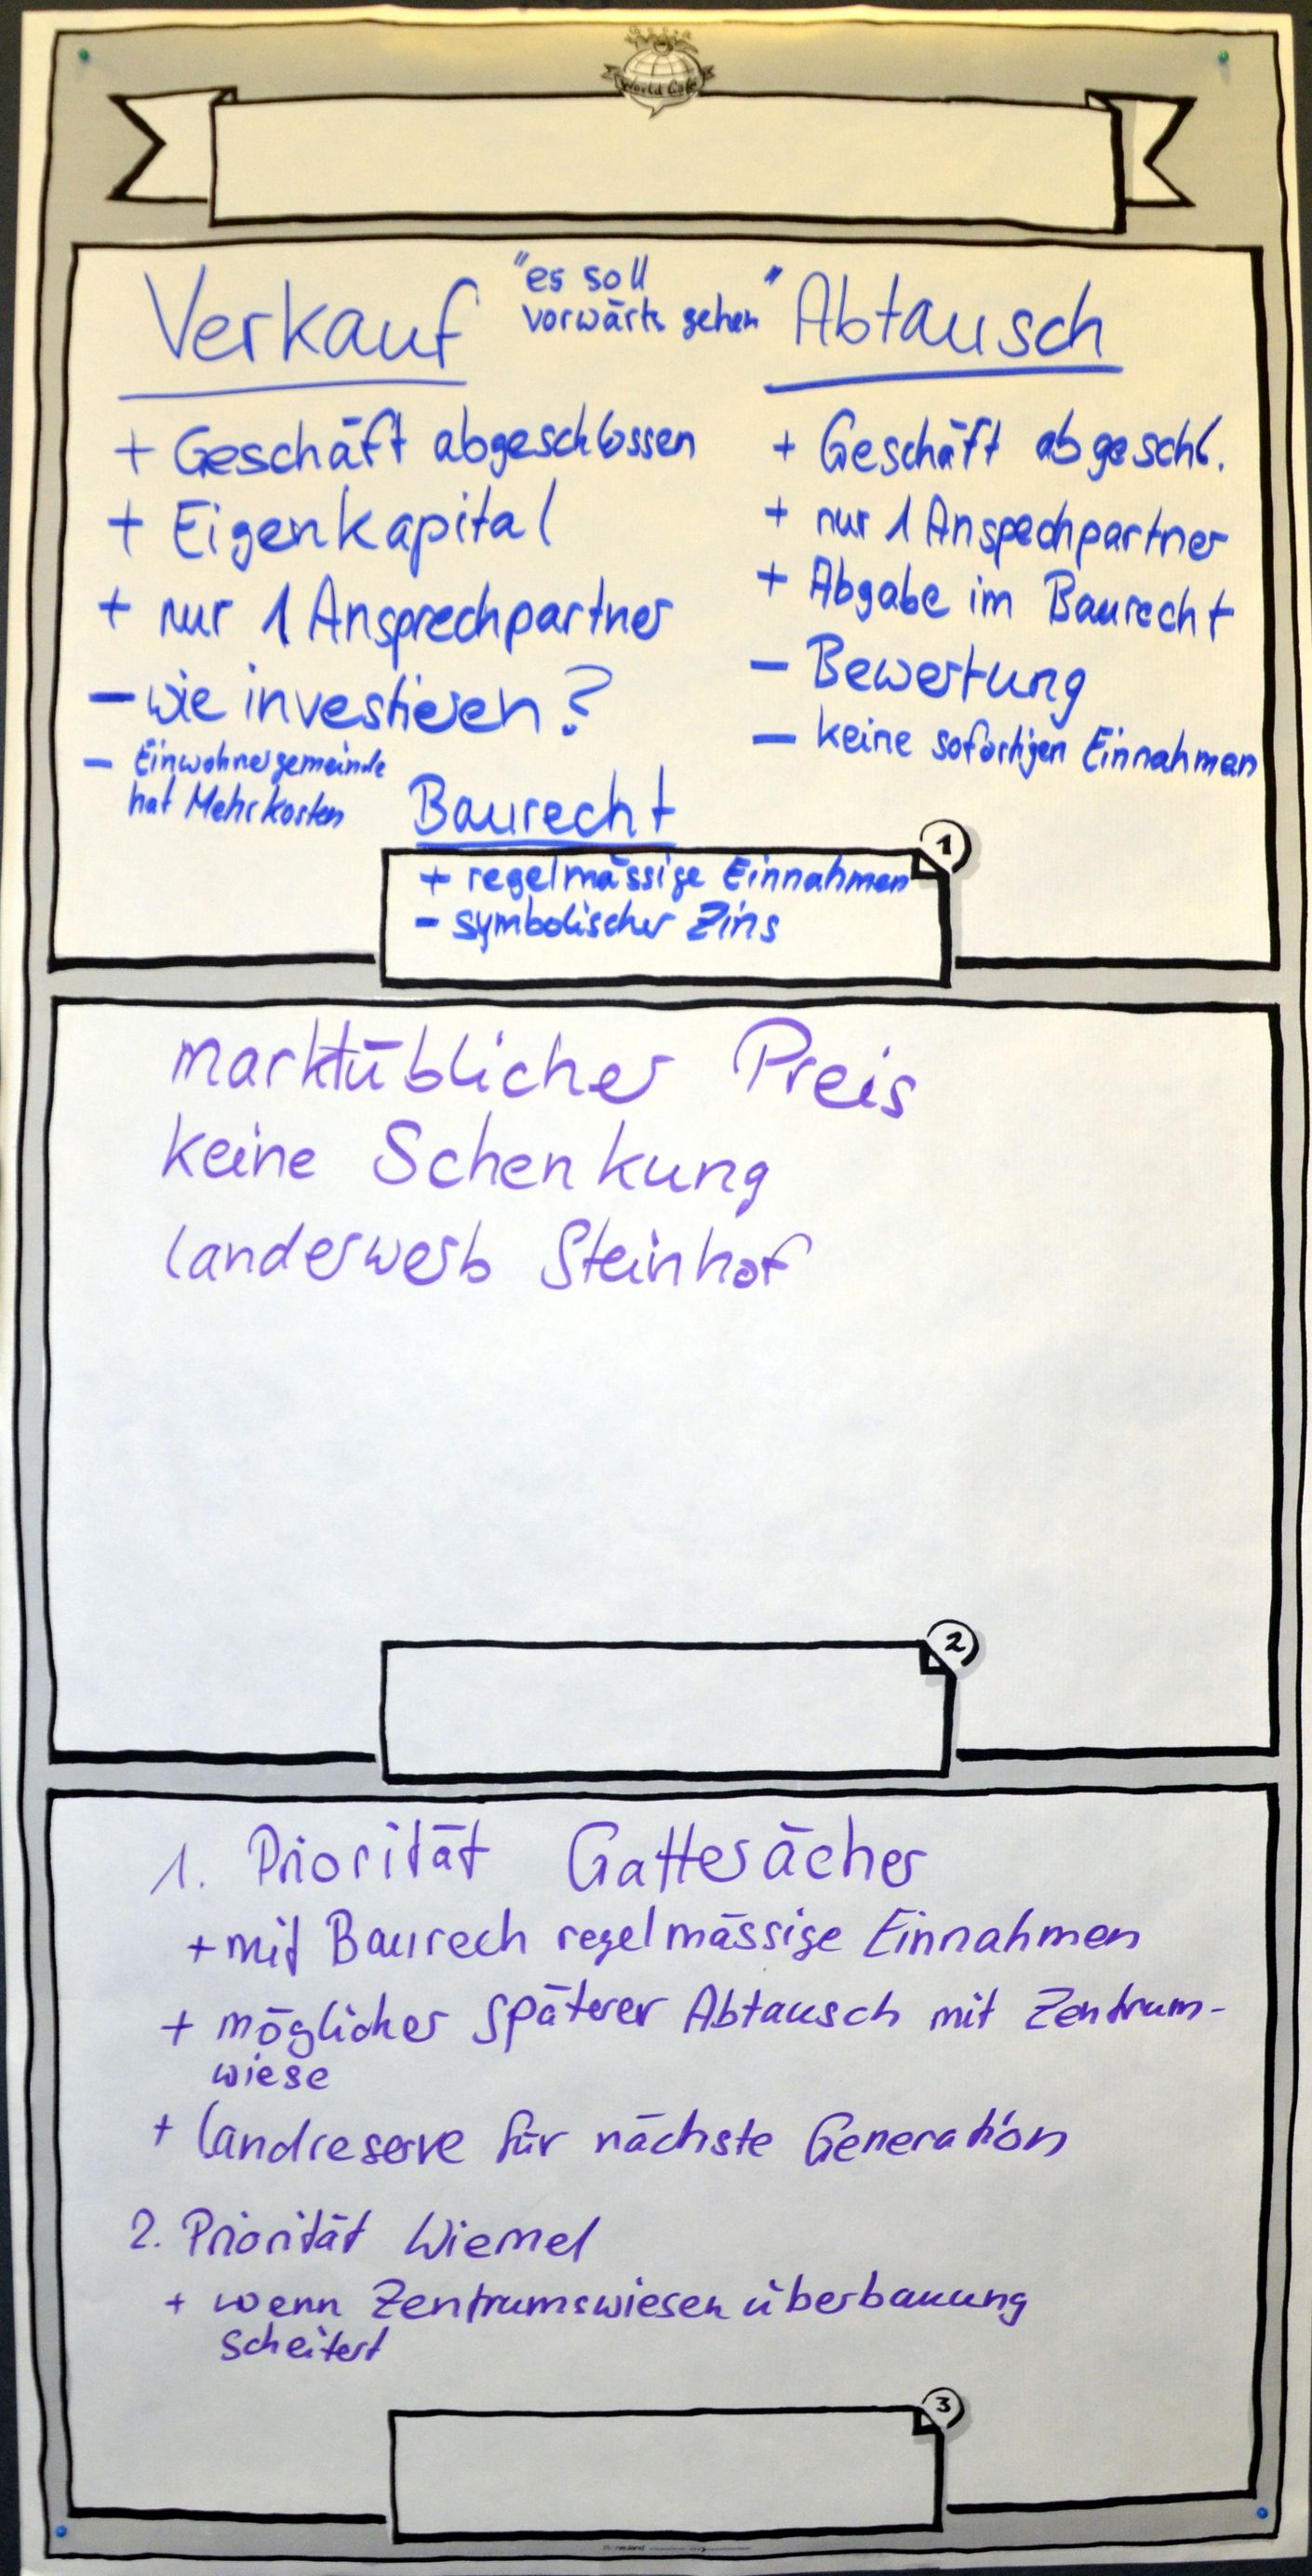 World Café
Verkauf
"es soll
vorwärts gehen"
Abtausch
+ Geschäft abgeschlossen
+ Eigenkapital
+ nur 1 Ansprechpartner
- wie investieren?
- Einwohnergemeinde
hat Mehrkosten
+ Geschäft abgeschl.
+ nur 1 Anspechpartner
+ Abgabe im Baurecht
- Bewertung
- keine sofortigen Einnahmen
Baurecht
+ regelmässige Einnahmen
- symbolischer Zins
1
marktüblicher Preis
keine Schenkung
Landerwerb Steinhof
2
1. Priorität Gatterächer
+ mit Baurech regelmässige Einnahmen
+ möglicher späterer Abtausch mit Zentrum-
wiese
+ Landreserve für nächste Generation
2. Priorität Wiemel
+ wenn Zentrumswiesenüberbauung
scheitert
3